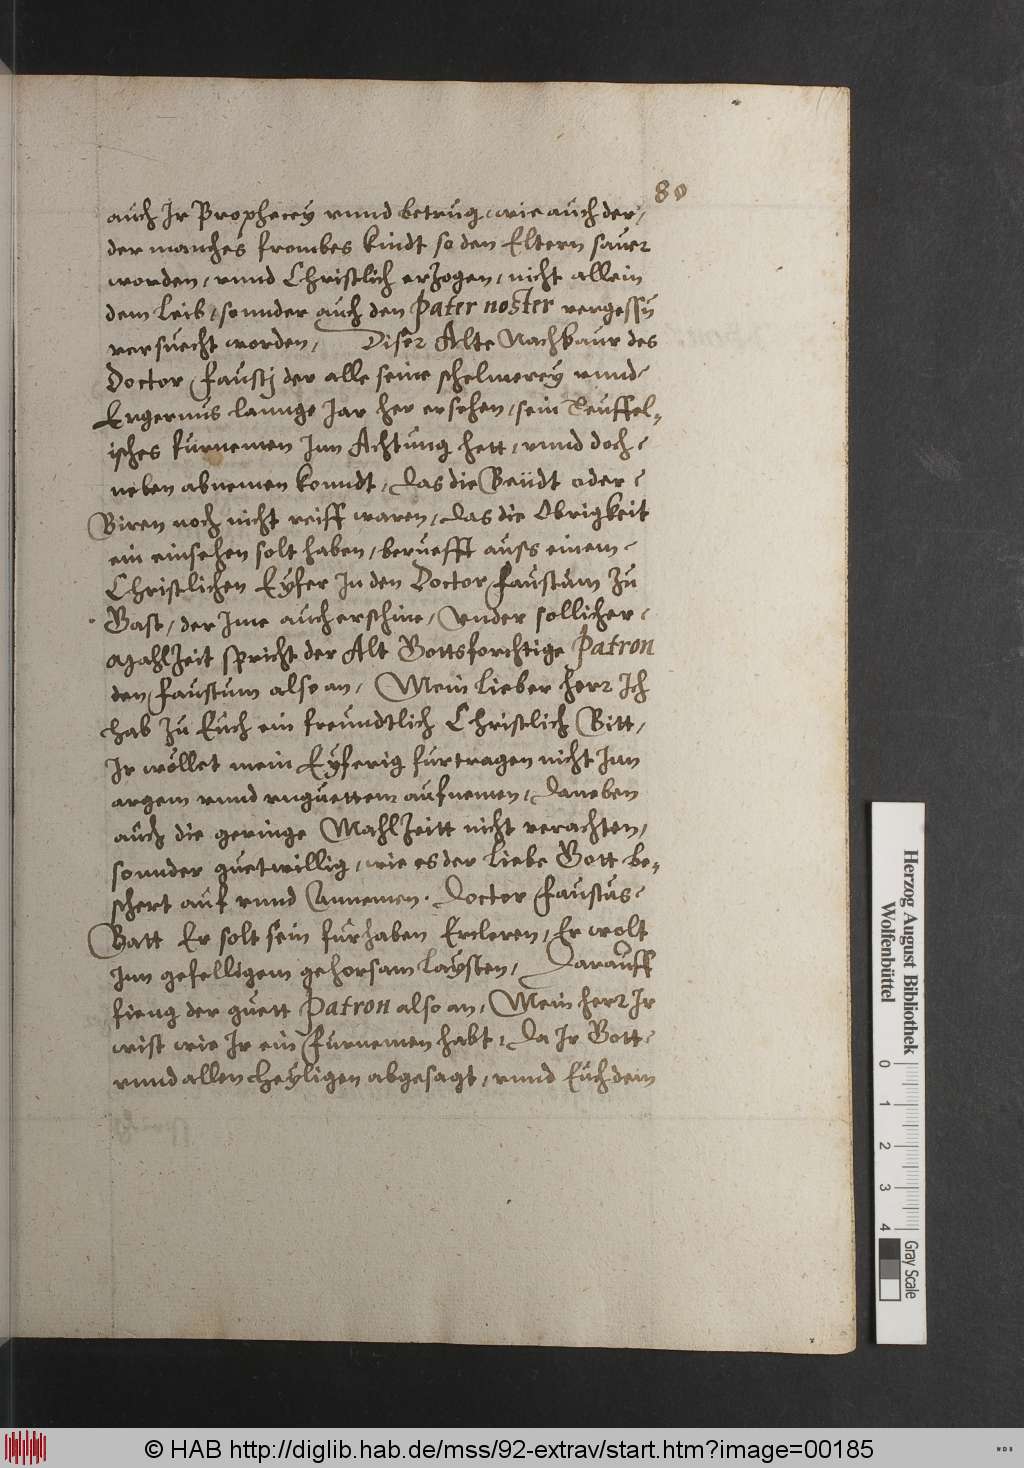 80
auch Ir Prophecey vnnd betrug, wie auch der,
der manches frombes kindt so den Eltern sauer
worden, vnnd Christlich erzogen, nicht allein
dem leib, sonnder auch den Pater noster vergessen
versuecht worden, Diser Alte Nachbaur des
Doctor Faustj der alle seine schelmerey vnnd
Ergernus lannge Jar her ersehen, sein Teuffel-
isches furnemen Inn Achtung hett, vnnd doch
neben abnemen konndt, das die Beüdt oder
Biren noch nicht reiff waren, das die Obrigkeit
ein einsehen solt haben, beruefft auss einem
Christlichen Eyfer In den Doctor Faustum zu
Gast, der Ime auch erschine, Vnder sollicher
Mahlzeit spricht der Alt Gottsforchtige Patron
den Faustum also an, Mein lieber herr Ich
hab zu Euch ein freundtlich Christlich Bitt,
Ir wöllet mein Eyferig furtragen nicht Inn
argem vnnd vnguettem aufnemen, daneben
auch die geringe Mahlzeitt nicht verachten,
sonnder guetwillig, wie es der liebe Gott be-
schert auf vnnd Annemen. Doctor Faustus
Batt Er solt sein furhaben Ercleren, Er wolt
Inn gefelligem gehorsam laysten, Darauff
fieng der guett Patron also an, Mein herr Ir
wist wie Ir ein furnemen habt, da Ir Gott
vnnd allen heyligen abgesagt, vnnd Euch dem
Herzog August Bibliothek
Wolfenbüttel
0 1 2 3 4
Gray Scale
© HAB http://diglib.hab.de/mss/92-extrav/start.htm?image=00185
WDB